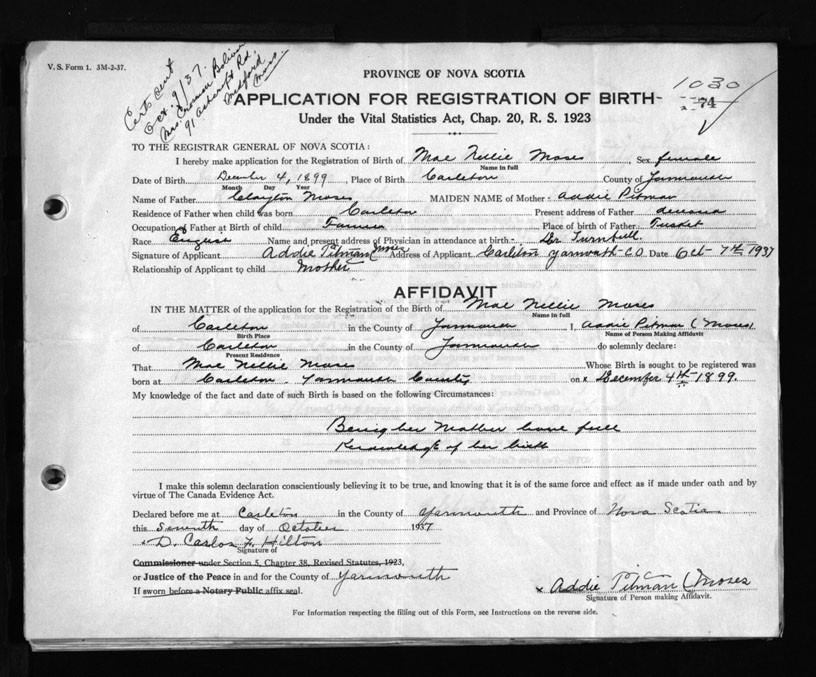 V. S. Form 1. 3M-2-37.
Certs sent
Oct. 9/37.
Mrs. Bolivar
91 Rd.
Medford
Mass.
PROVINCE OF NOVA SCOTIA
1030
APPLICATION FOR REGISTRATION OF BIRTH
74
Under the Vital Statistics Act, Chap. 20, R. S. 1923
TO THE REGISTRAR GENERAL OF NOVA SCOTIA:
I hereby make application for the Registration of Birth of Mae Nellie Moses, Sex female
Name in full
Date of Birth December 4, 1899, Place of Birth Carleton County of Yarmouth
Month Day Year
Name of Father Clayton Moses MAIDEN NAME of Mother Addie Pitman
Residence of Father when child was born Carleton Present address of Father deceased
Occupation of Father at Birth of child Farmer Place of birth of Father Tusket
Race English Name and present address of Physician in attendance at birth Dr Turnbull.
Signature of Applicant Addie Pitman (Moses Address of Applicant Carleton Yarmouth CO Date Oct 7th 1937
Relationship of Applicant to child Mother
AFFIDAVIT
IN THE MATTER of the application for the Registration of the Birth of Mae Nellie Moses
Name in full
of Carleton in the County of Yarmouth I, Addie Pitman (Moses)
Birth Place Name of Person Making Affidavit
of Carleton in the County of Yarmouth do solemnly declare:
Present Residence
That Mae Nellie Moses Whose Birth is sought to be registered was
born at Carleton. Yarmouth County on x December 4th 1899.
My knowledge of the fact and date of such Birth is based on the following Circumstances:
Being her Mother have full
Knowledge of her birth
I make this solemn declaration conscientiously believing it to be true, and knowing that it is of the same force and effect as if made under oath and by
virtue of The Canada Evidence Act.
Declared before me at Carleton in the County of Yarmouth and Province of Nova Scotia
this Seventh day of October 1937
D. Carlos F. Hilton
Signature of
Commissioner under Section 5, Chapter 38, Revised Statutes, 1923,
or Justice of the Peace in and for the County of Yarmouth
If sworn before a Notary Public affix seal.
x Addie Pitman (Moses
Signature of Person making Affidavit.
For Information respecting the filling out of this Form, see Instructions on the reverse side.